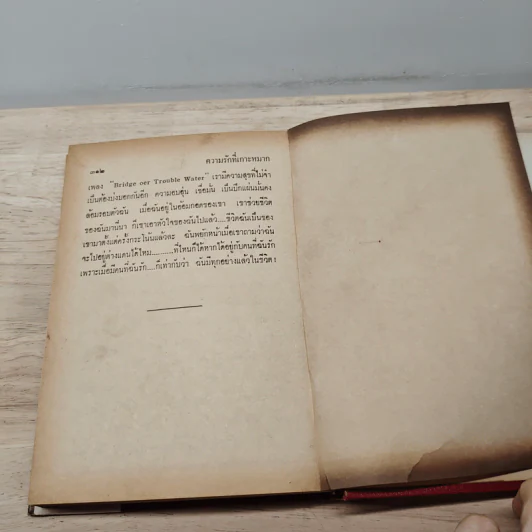 ๓๑๒
ความรักที่เกาะหมาก
เพลง "Bridge oer Trouble Water" เรามีความสุขที่ไม่จำ
เป็นต้องบ่งบอกกันอีก ความอบอุ่น เชื่อมั่น เป็นปึกแผ่นมั่นคง
ล้อมรอบตัวฉัน เมื่อฉันอยู่ในอ้อมกอดของเขา เขาช่วยชีวิต
ของฉันมาปีนนา ก็เขาเอาหัวใจของฉันไปแล้ว.....ชีวิตฉันเป็นของ
เขามาตั้งแต่ครั้งกระโน้นแล้วละ ฉันพยักหน้าเมื่อเขาถามว่าฉัน
จะไปอยู่ต่างแดนได้ไหม...........ที่ไหนก็ได้หากได้อยู่กับคนที่ฉันรัก
เพราะเมื่อมีคนที่ฉันรัก....ก็เท่ากับว่า ฉันมีทุกอย่างแล้วในชีวิต